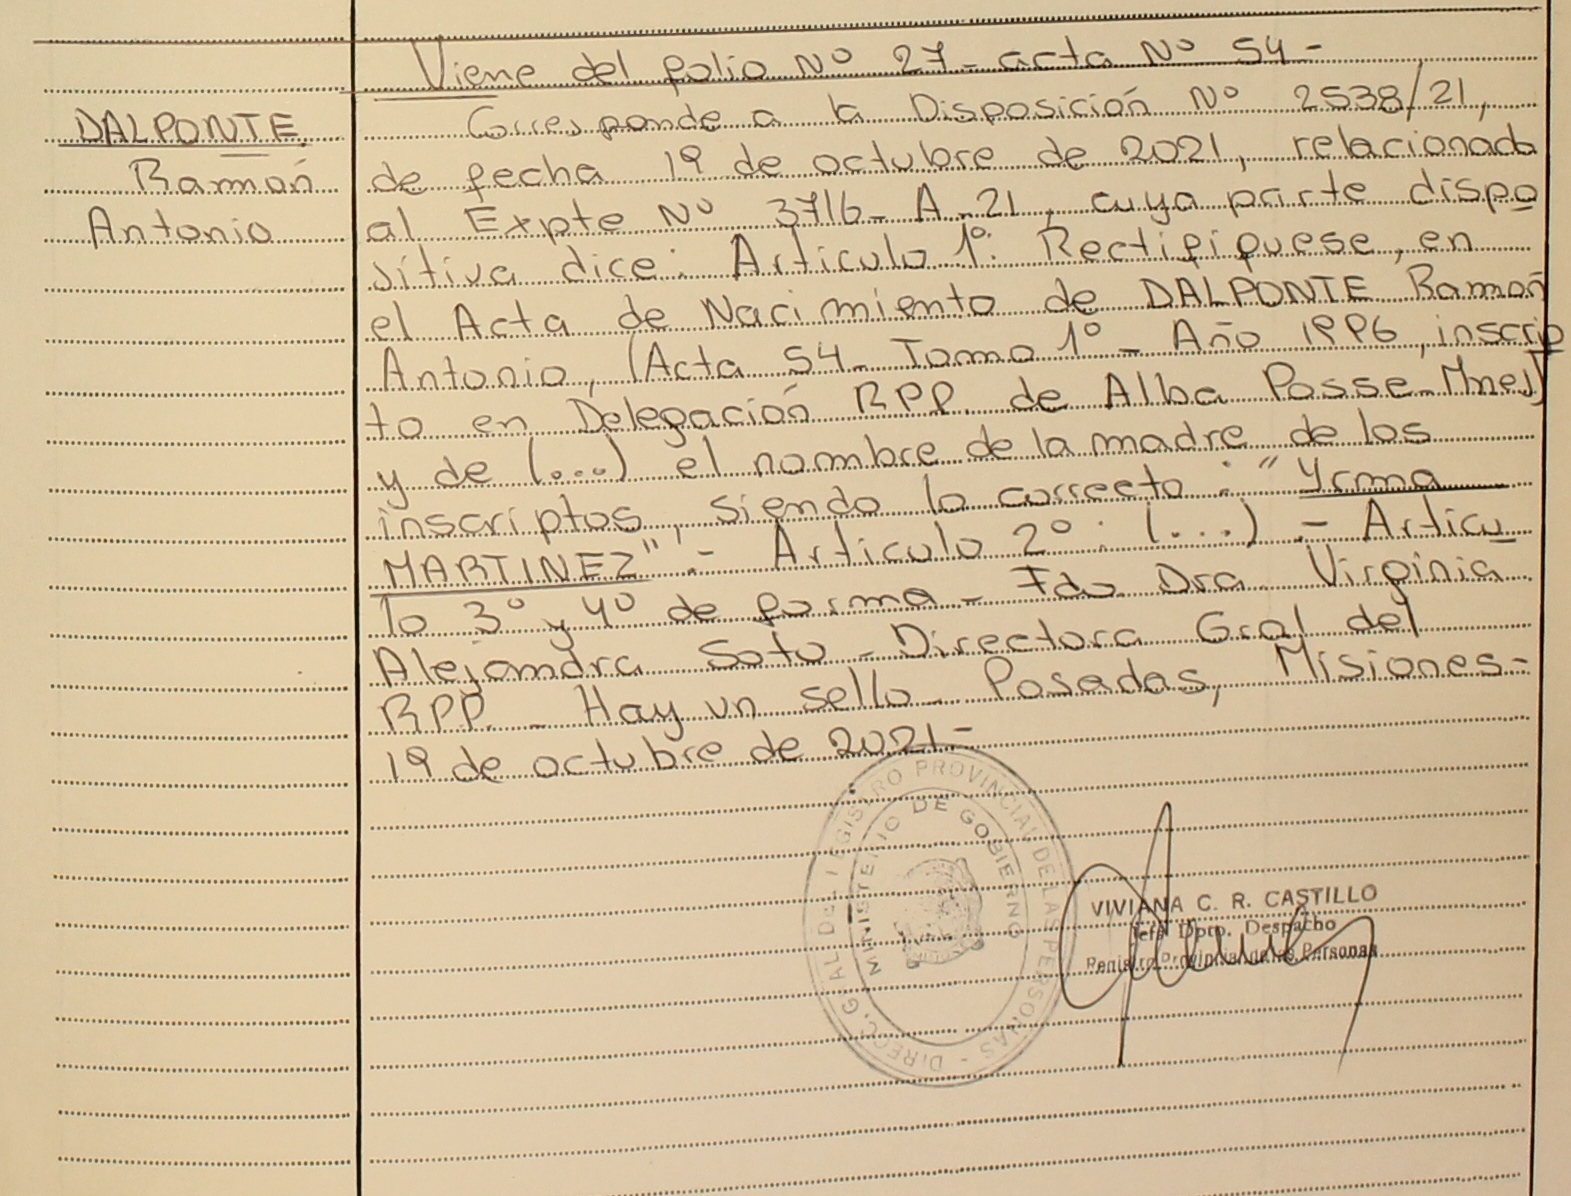 Viene del folio Nº 27- acta Nº 54-
DALPONTE
Ramón
Antonio
Corresponde a la Disposición Nº 2538/21,
de fecha 19 de octubre de 2021, relacionada
al Expte Nº 3716- A-21, cuya parte dispo
sitiva dice: Artículo 1º: Rectifiquese, en
el Acta de Nacimiento de DALPONTE Ramón
Antonio, (Acta 54- Tomo 1º- Año 1996, inscrip
to en Delegación RPP. de Alba Posse-Mnes)
y de (...) el nombre de la madre de los
inscriptos, siendo lo correcto: "Yrma
MARTINEZ".- Articulo 2º: (...) - Artícu
lo 3º y 4º de forma- Fdo Dra. Virginia
Alejandra Soto - Directora Gral del
RPP. - Hay un sello- Posadas, Misiones-
19 de octubre de 2021.-
DIRECC. GRAL DEL REGISTRO PROVINCIAL DE LAS PERSONAS -
MINISTERIO DE GOBIERNO
VIVIANA C. R. CASTILLO
Jefa Dpto. Despacho
Registro Provincial de las Personas